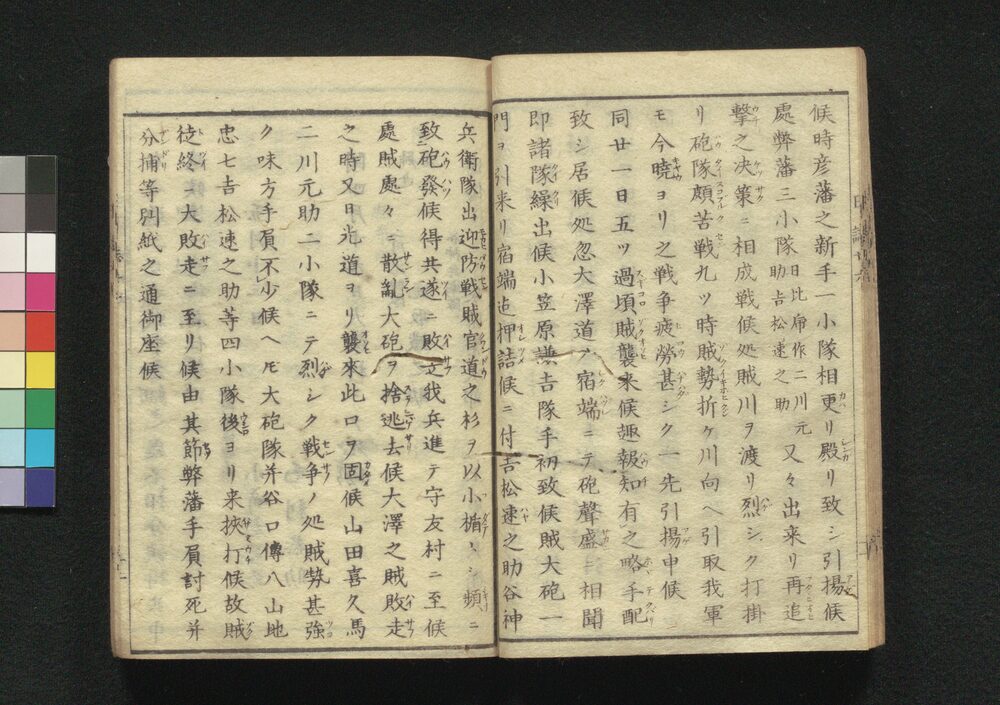 候時彦藩之新手一小隊相更リ殿リ致シ引揚候
處弊藩三小隊日比帠作二川元助吉松速之助又々出来リ再追
撃之决策ニ相成戦候処賊川ヲ渡リ烈シク打掛
リ砲隊頗苦戦九ツ時賊勢折ケ川向ヘ引取我軍
モ今暁ヨリ之戦争疲勞甚シク一先引揚申候
同廿一日五ツ過頃賊襲来候趣報知有之略手配
致シ居候処忽大澤道ノ宿端ニテ砲聲盛ニ相聞
即諸隊繰出候小笠原謙吉隊手初致候賊大砲一
門ヲ引来リ宿端迠押詰候ニ付吉松速之助谷神
兵衛隊出迎防戦賊官道之杉ヲ以小楯トシ頻ニ
致砲發候得共遂ニ敗立我兵進テ守友村ニ至候
處賊處々ニ散亂大砲ヲ捨逃去候大澤之賊敗走
之時又日光道ヨリ襲來此口ヲ固候山田喜久馬
二川元助二小隊ニテ烈シク戦争ノ処賊勢甚強
ク味方手屓不少候ヘ𪜈大砲隊并谷口傳八山地
忠七吉松速之助等四小隊後ヨリ来挾打候故賊
徒終ニ大敗走ニ至リ候由其節弊藩手屓討死并
分捕等別紙之通御座候